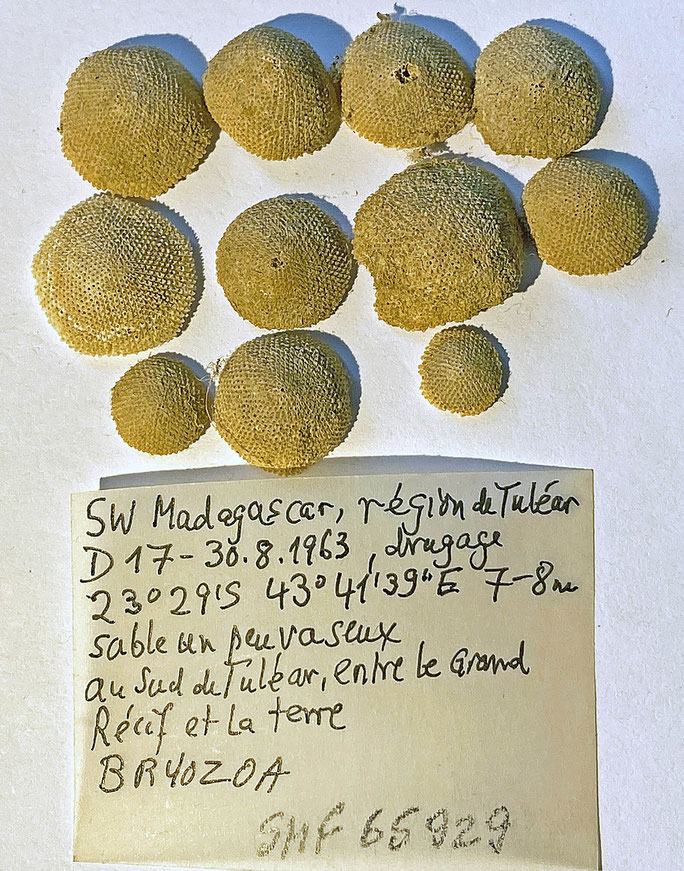 SW Madagascar, région de Tuléar
D 17 - 30.8.1963, drugage
23°29'S 43°41'39"E 7-8m
sable un peu vaseux
au Sud de Tuléar, entre le Grand
Récif et la terre
BRYOZOA
SMF 65929